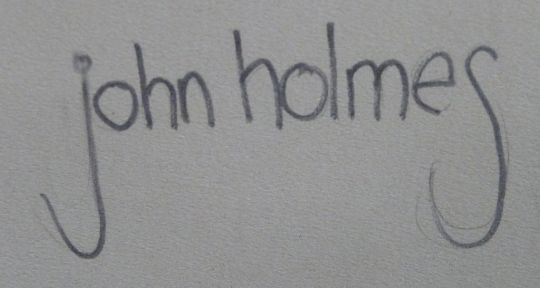 john holmes